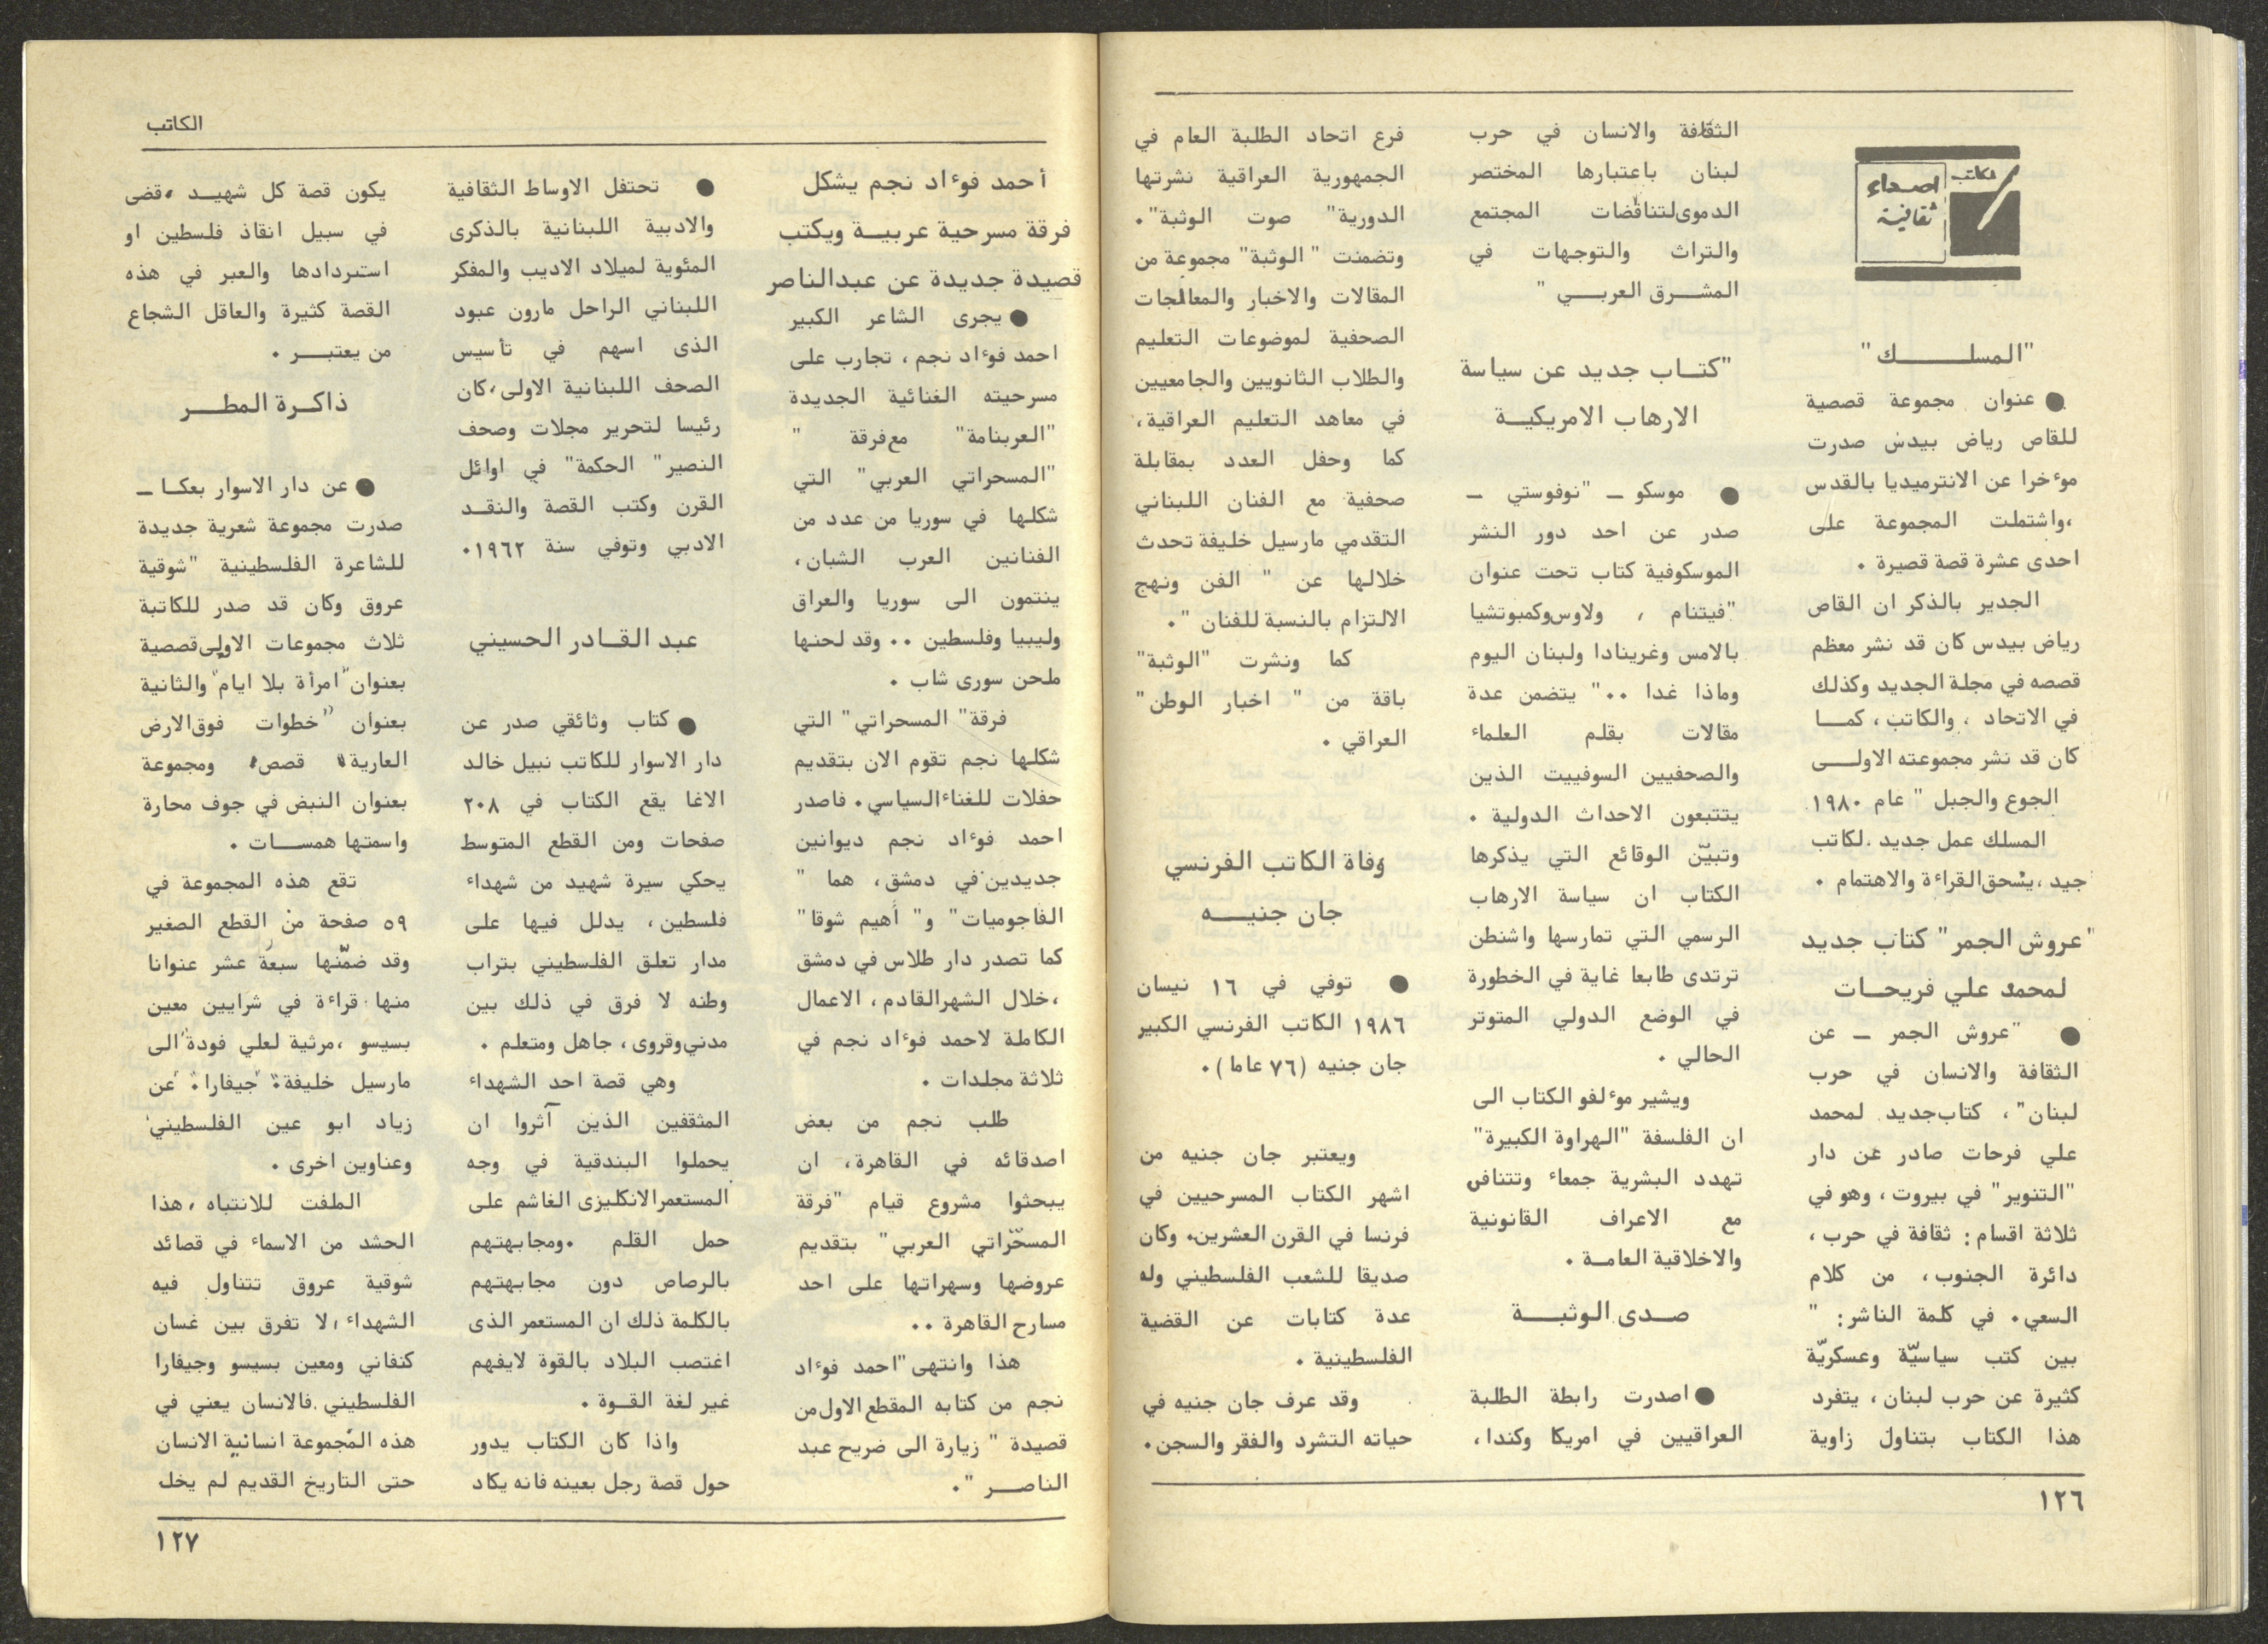 الكاتب
اصداء
ثقافية
"المسلـــــــك"
● عنوان مجموعة قصصية
للقاص رياض بيدس صدرت
موءخرا عن الانترميديا بالقدس
،واشتملت المجموعة على
احدى عشرة قصة قصيرة .
الجدير بالذكر ان القاص
رياض بيدس كان قد نشر معظم
قصصه في مجلة الجديد وكذلك
في الاتحاد ، والكاتب ، كمـــا
كان قد نشر مجموعته الاولـــى
الجوع والجبل " عام ١٩٨٠
المسلك عمل جديد لكاتب
جيد ،يستحق القراءة والاهتمام .
"عروش الجمر" كتاب جديد
لمحمد علي فريحــات
● "عروش الجمر – عن
الثقافة والانسان في حرب
لبنان" ، كتاب جديد لمحمد
علي فرحات صادر عن دار
"التنوير" في بيروت ، وهو في
ثلاثة اقسام : ثقافة في حرب ،
دائرة الجنوب ، من كلام
السعي . في كلمة الناشر : "
بين كتب سياسيّة وعسكريّة
كثيرة عن حرب لبنان ، يتفرد
هذا الكتاب بتناول زاوية
الثقافة والانسان في حرب
لبنان باعتبارها المختصر
الدموى لتناقضات المجتمع
والتراث والتوجهات في
المشـــرق العربـــي "
"كتــاب جديد عن سياسة
الارهاب الامريكيــة
● موسكو – "نوفوستي –
صدر عن احد دور النشر
الموسكوفية كتاب تحت عنوان
"فيتنام ، ولاوس وكمبوتشيا
بالامس وغرينادا ولبنان اليوم
وماذا غدا .." يتضمن عدة
مقالات بقلم العلماء
والصحفيين السوفييت الذين
يتتبعون الاحداث الدولية .
وتبيّن الوقائع التي يذكرها
الكتاب ان سياسة الارهاب
الرسمي التي تمارسها واشنطن
ترتدى طابعا غاية في الخطورة
في الوضع الدولي المتوتر
الحالي .
ويشير موءلفو الكتاب الى
ان الفلسفة "الهراوة الكبيرة"
تهدد البشرية جمعاء وتتنافى
مع الاعراف القانونية
والاخلاقية العامــة .
صــدى الوثبــــة
● اصدرت رابطة الطلبة
العراقيين في امريكا وكندا ،
فرع اتحاد الطلبة العام في
الجمهورية العراقية نشرتها
الدورية" صوت الوثبة" .
وتضمنت " الوثبة" مجموعة من
المقالات والاخبار والمعالجات
الصحفية لموضوعات التعليم
والطلاب الثانويين والجامعيين
في معاهد التعليم العراقية ،
كما وحفل العدد بمقابلة
صحفية مع الفنان اللبناني
التقدمي مارسيل خليفة تحدث
خلالها عن " الفن ونهج
الالتزام بالنسبة للفنان " .
كما ونشرت "الوثبة"
باقة من " اخبار الوطن"
العراقي .
وفاة الكاتب الفرنسي
جان جنيــــه
● توفي في ١٦ نيسان
١٩٨٦ الكاتب الفرنسي الكبير
جان جنيه (٧٦ عاما) .
ويعتبر جان جنيه من
اشهر الكتاب المسرحيين في
فرنسا في القرن العشرين. وكان
صديقا للشعب الفلسطيني وله
عدة كتابات عن القضية
الفلسطينية .
وقد عرف جان جنيه في
حياته التشرد والفقر والسجن .
١٢٦
الكاتب
أحمد فوءاد نجم يشكل
فرقة مسرحية عربيــة ويكتب
قصيدة جديدة عن عبدالناصر
● يجرى الشاعر الكبير
احمد فوءاد نجم ، تجارب على
مسرحيته الغنائية الجديدة
"العربنامة" مع فرقة "
"المسحراتي العربي" التي
شكلها في سوريا من عدد من
الفنانين العرب الشبان ،
ينتمون الى سوريا والعراق
وليبيا وفلسطين .. وقد لحنها
ملحن سورى شاب .
فرقة" المسحراتي" التي
شكلها نجم تقوم الان بتقديم
حفلات للغناء السياسي . فاصدر
احمد فوءاد نجم ديوانين
جديدين في دمشق ، هما "
الفاجوميات" و" أهيم شوقا"
كما تصدر دار طلاس في دمشق
،خلال الشهر القادم ، الاعمال
الكاملة لاحمد فوءاد نجم في
ثلاثة مجلدات .
طلب نجم من بعض
اصدقائه في القاهرة ، ان
يبحثوا مشروع قيام "فرقة
المسحّراتي العربي" بتقديم
عروضها وسهراتها على احد
مسارح القاهرة ..
هذا وانتهى "احمد فوءاد
نجم من كتابه المقطع الاول من
قصيدة " زيارة الى ضريح عبد
الناصـــر " .
● تحتفل الاوساط الثقافية
والادبية اللبنانية بالذكرى
المئوية لميلاد الاديب والمفكر
اللبناني الراحل مارون عبود
الذى اسهم في تأسيس
الصحف اللبنانية الاولى ، كان
رئيسا لتحرير مجلات وصحف
النصير" الحكمة" في اوائل
القرن وكتب القصة والنقــد
الادبي وتوفي سنة ١٩٦٢ .
عبد القــادر الحسيني
● كتاب وثائقي صدر عن
دار الاسوار للكاتب نبيل خالد
الاغا يقع الكتاب في ٢٠٨
صفحات ومن القطع المتوسط
يحكي سيرة شهيد من شهداء
فلسطين ، يدلل فيها على
مدار تعلق الفلسطيني بتراب
وطنه لا فرق في ذلك بين
مدني وقروى ، جاهل ومتعلم .
وهي قصة احد الشهداء
المثقفين الذين آثروا ان
يحملوا البندقية في وجه
المستعمر الانكليزى الغاشم على
حمل القلم .ومجابهتهم
بالرصاص دون مجابهتهم
بالكلمة ذلك ان المستعمر الذى
اغتصب البلاد بالقوة لايفهم
غير لغة القــوة .
واذا كان الكتاب يدور
حول قصة رجل بعينه فانه يكاد
يكون قصة كل شهيــد ، قضى
في سبيل انقاذ فلسطين او
استبردادها والعبر في هذه
القصة كثيرة والعاقل الشجاع
من يعتبـــر .
ذاكــرة المطـــر
● عن دار الاسوار بعكـا –
صدرت مجموعة شعرية جديدة
للشاعرة الفلسطينية "شوقية
عروق وكان قد صدر للكاتبة
ثلاث مجموعات الاولى قصصية
بعنوان "امرأة بلا ايام" والثانية
بعنوان "خطوات فوق الارض
العارية" قصص، ومجموعة
بعنوان النبض في جوف محارة
واسمتها همســـات .
تقع هذه المجموعة في
٥٩ صفحة من القطع الصغير
وقد ضمّنها سبعة عشر عنوانا
منها قراءة في شرايين معين
بسيسو ،مرثية لعلي فودة "الى
مارسيل خليفة" "جيفارا" "عن
زياد ابو عين الفلسطيني
وعناوين اخرى .
الملفت للانتباه ، هذا
الحشد من الاسماء في قصائد
شوقية عروق تتناول فيه
الشهداء ، لا تفرق بين غسان
كنفاني ومعين بسيسو وجيفارا
الفلسطيني .فالانسان يعني في
هذه المجموعة انسانية الانسان
حتى التاريخ القديم لم يخل
١٢٧